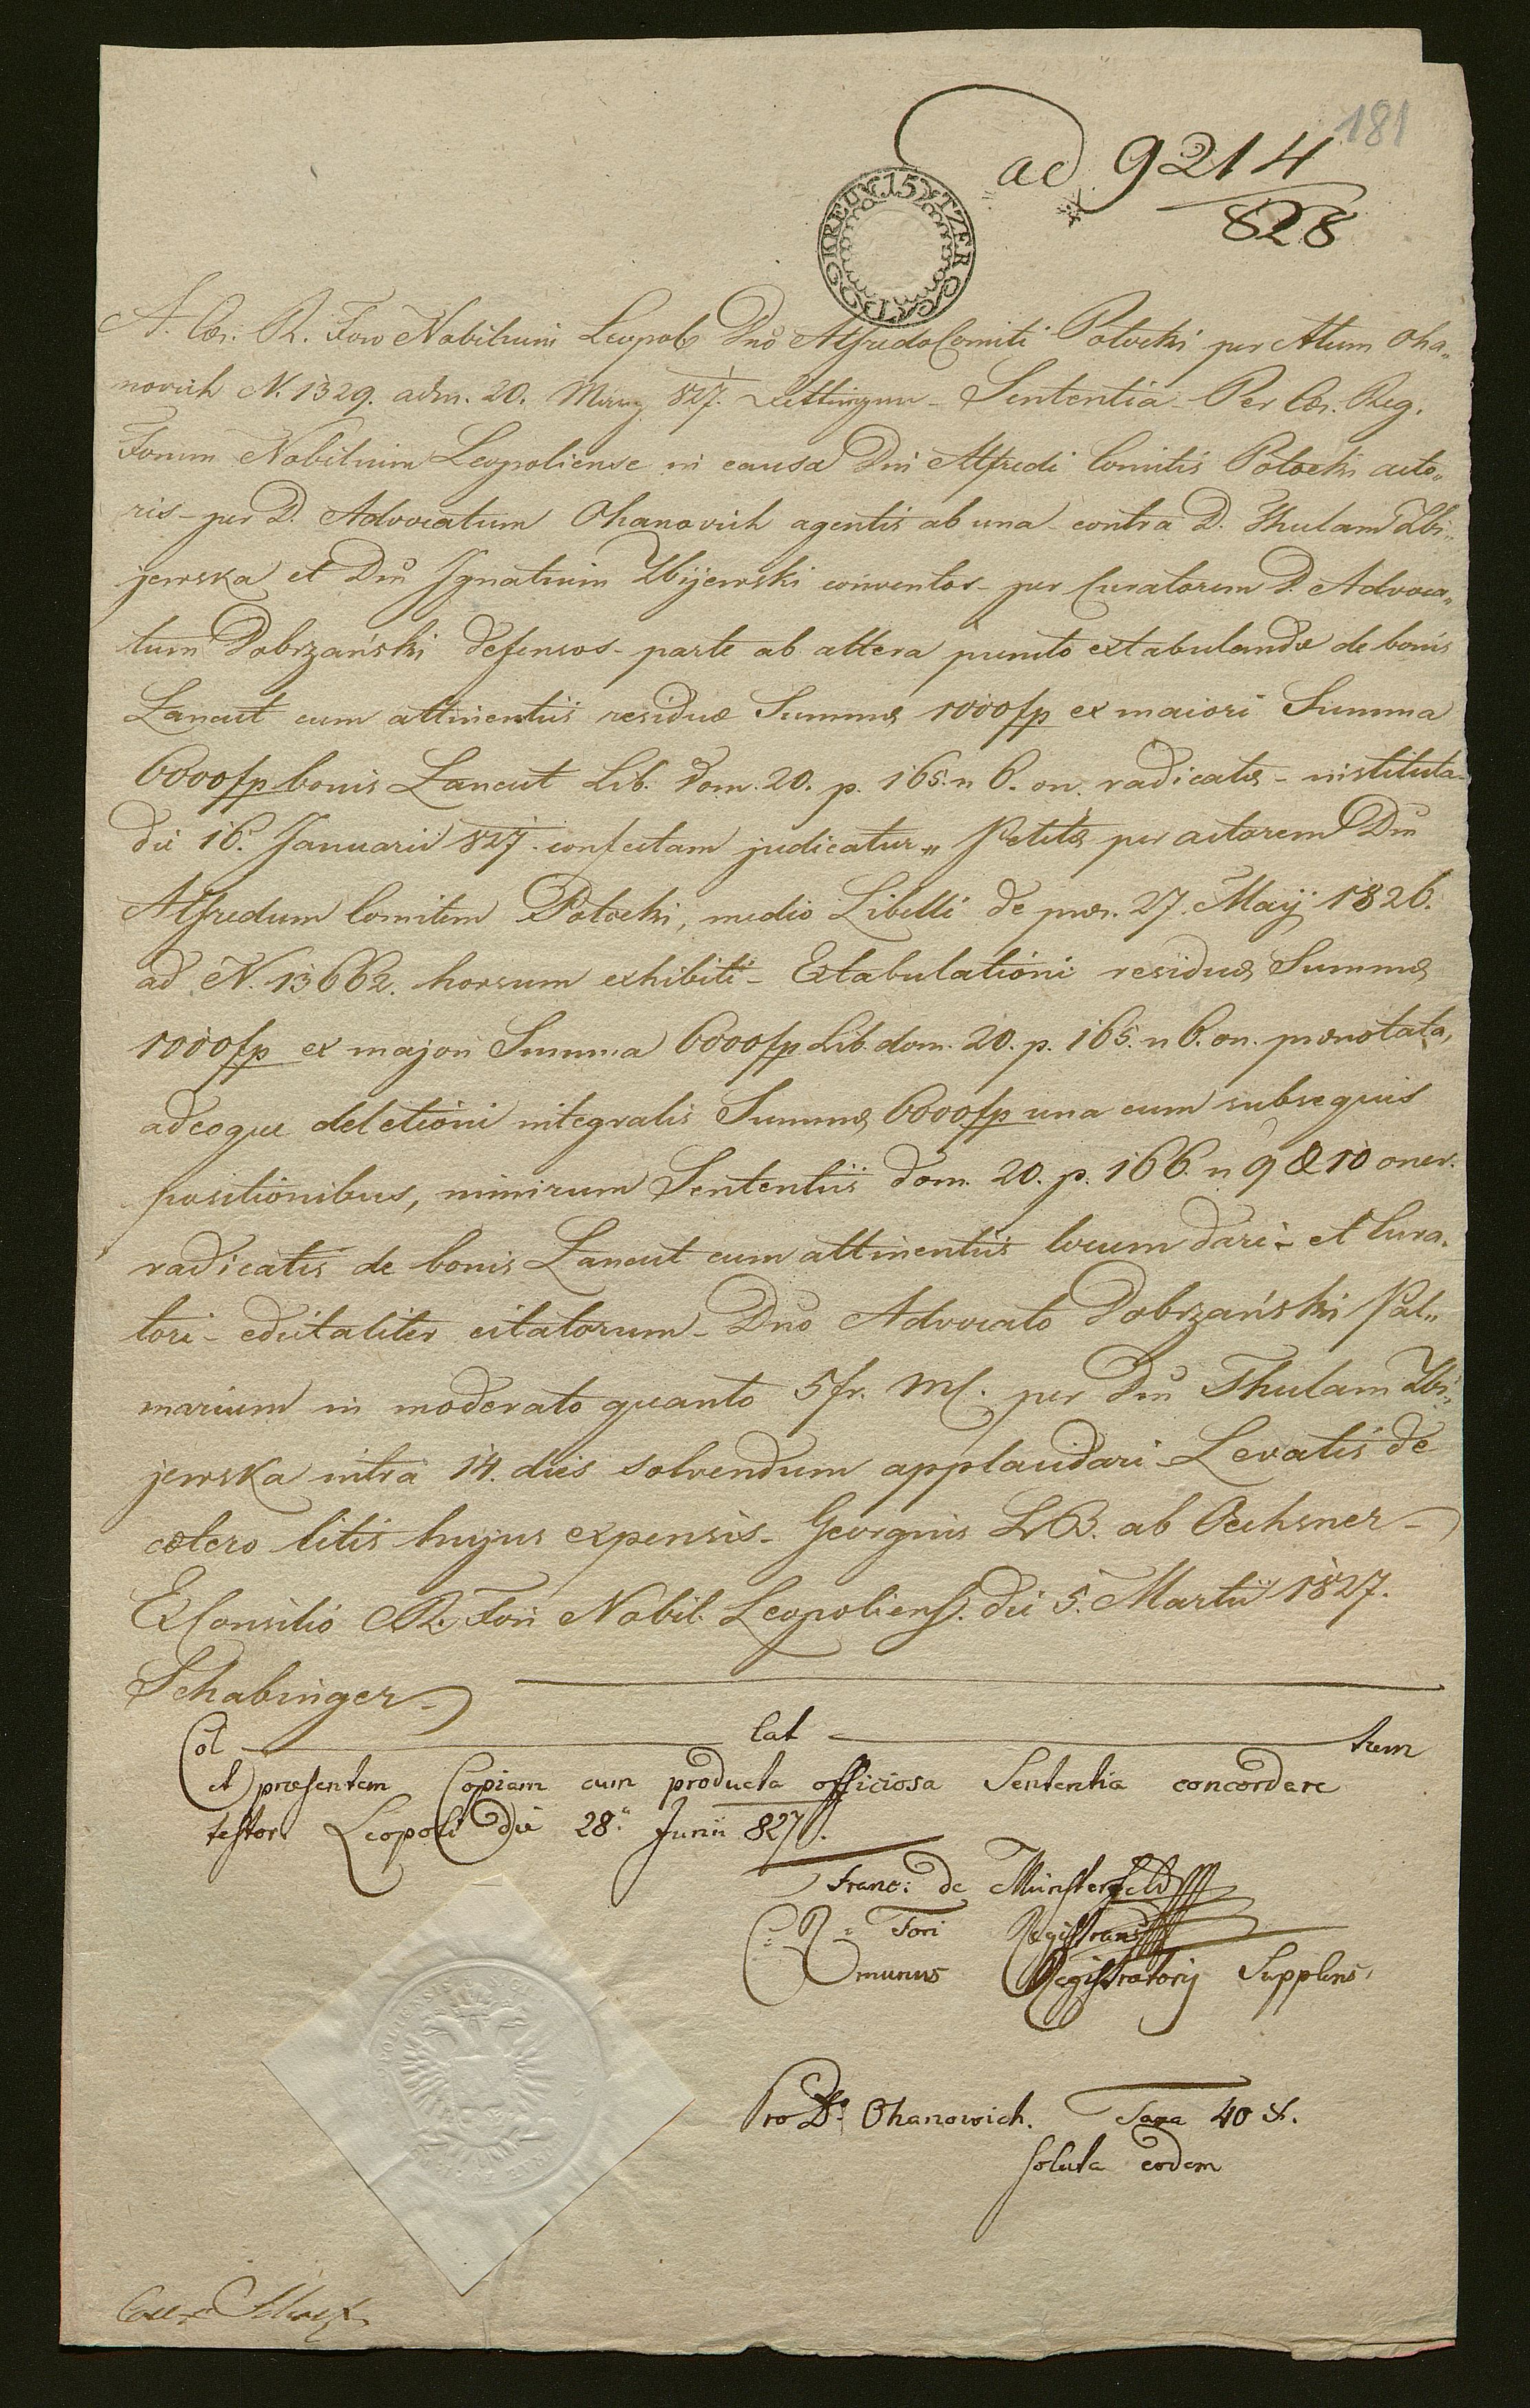 181
ad 9214
828
15 KREUTZER
A. Cæs. R. Foro Nobilium Leopol. Dno Alfredo Comiti Potocki per Atum Oha„
novich N. 1329. adm. 20. 827. Sententia - Per Cæs. Reg.
Forum Nobilium Leopoliense in causa Dni Alfredi Comitis Potocki acto„
ris - per D. Advocatum Ohanovich agentis ab una - contra D. Thulam Zbi„
jewska et Dnu Ignatium Zbijewski conventos - per Curatorem D. Advoca„
tum Dobrzański defensos - parte ab altera puncto extabulandæ de bonis
Lancut cum attinentiis residuæ Summæ 1000fp ex maiori Summa
6000fp bonis Lancut Lib. Dom. 20. p. 165. n 6. on. radicatæ - instituta
die 16. Januarii 827. confectam judicatur „ Petitæ per actorem Dnu
Alfredum Comitem Potocki, medio Libelli de præs. 27. Maij 1826.
ad N. 13662. horsum exhibiti - Extabulationi residuæ Summæ
1000fp ex majori Summa 6000fp Lib. dom. 20. p. 165. n 6. on. prænotata,
adeoque deletioni integralis Summæ 6000fp una cum subsequis
positionibus, nimirum Sententiis Dom. 20. p. 166. n 9 & 10 oner.
radicatis de bonis Lancut cum attinentiis locum dari - et Cura„
tori - edictaliter citatorum - Dno Advocato Dobrzański Pal„
marium in moderato quanto 5 fr. MC. per Dnu Thulam Zbi„
jewska intra 14. dies solvendum applacidari - Levatis de
cætero litis hujus expensis - Georgius LB. ab Oechsner -
Ex Consilio CR. Fori Nobil. Leopoliens. die 5. Martii 1827.
Schabinger
Col lat tum
et præsentem Copiam cum producta officiosa Sententia concordare
testor. Leopoli Die 28. Junii 827.
Franc: de Münsterfeld
C: R: Fori Registrans
munus Registratorij Supplens,
Pro D: Ohanowich. Taxa 40 x.
soluta eodem